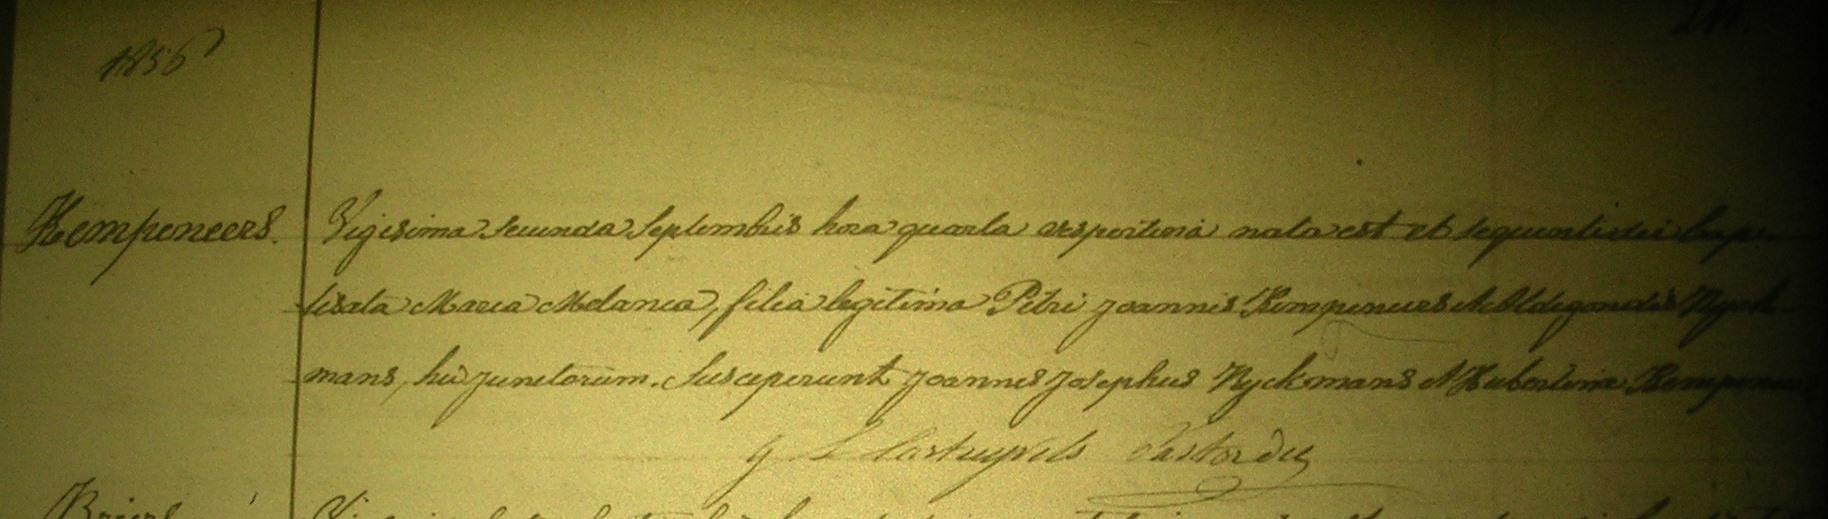 1856
Kempeneers. Vigesima secunda Septembris hora quarta vespertina nata est et sequenti die bap-
tisata Maria Melania, filia legitima Petri Joannis Kempeneers et Aldegondis Ryck-
mans, hic junctorum. Susceperunt Joannes Josephus Ryckmans et Hubertina Kempeneers
Pastor